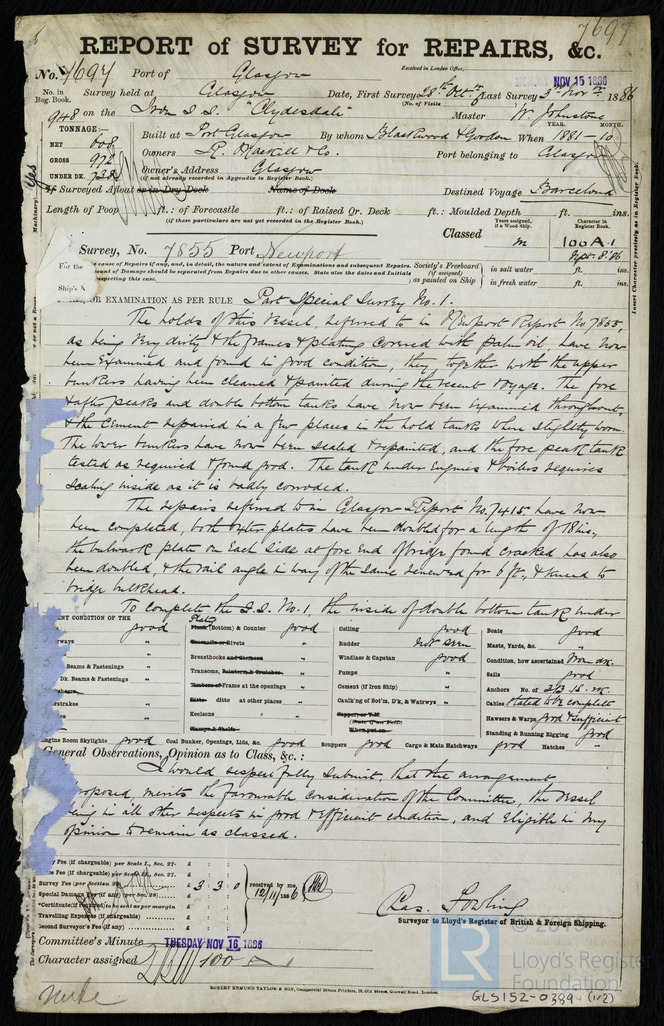 7697
REPORT of SURVEY for REPAIRS, &c.
Received in London Office,
No. 7697 Port of Glasgow
NOV 15 1886
No. in Reg. Book. Survey held at Glasgow Date, First Survey 28th Octr Last Survey 3rd Novr 1886
(No. of Visits)
948 on the Iron S.S. "Clydesdale" Master W. Johnstone
TONNAGE:—
YEAR. MONTH.
NET 608 Built at Port Glasgow By whom Blackwood & Gordon When 1881-10
GROSS 972 Owners Port belonging to Glasgow
UNDER DK. 738 Owner's Address Glasgow
(if not already recorded in Appendix to Register Book.)
If Surveyed Afloat or in Dry Dock Name of Dock Destined Voyage Barcelona
Length of Poop ft.: of Forecastle ft.: of Raised Qr. Deck ft.: Moulded Depth ft. ins.
(if those particulars are not yet recorded in the Register Book.)
Years assigned, if a Wood Ship.
Character in Register Book.
Classed 100 A.1
Sept. 8.86
Survey, No. 7855 Port Newport
Society's Freeboard (if assigned) as painted on Ship
in salt water ft. ins.
in fresh water ft. ins.
OR EXAMINATION AS PER RULE Part Special Survey No. 1.
The holds of this vessel, referred to in Newport Report No 7855,
as being very dirty & the frames & plating covered with palm oil, have now
been examined and found in good condition, they together with the upper
bunkers having been cleaned & painted during the recent voyage. The fore
& after peaks and double bottom tanks have now been examined throughout,
& the cement repaired in a few places in the hold tanks where slightly worn.
The lower bunkers have now been scaled & repainted, and the fore peak tank
tested as required & found good. The tank under Engines & boilers requires
scaling inside as it is badly corroded.
The repairs referred to in Glasgow Report No. 7415 have now
been completed, both plates have been doubled for a length of 18 ins,
the bulwark plate on each side at fore end of bridge found cracked has also
been doubled & the rail angle in way of the same renewed for 6 ft., & kneed to
bridge bulkhead.
To complete the S.S. No. 1, the inside of double bottom tank under
ENT CONDITION OF THE
good
Dk. Beams & Fastenings "
Plank (Bottom) & Counter good
Treenails or Rivets "
Breasthooks and Stemson "
Transoms, Pointers, & Crutches "
Timbers of Frame at the openings "
Ditto ditto at other places "
Keelsons "
Clamps & Shelfs
Ceiling good
Rudder not seen
Windlass & Capstan good
Pumps "
Cement (if Iron Ship) "
Caulk'ng of Bot'm, D'k, & Watrways "
Boats good
Masts, Yards, &c. "
Condition, how ascertained
Sails good
Anchors No. of
Cables stated to be complete
Hawsers & Warps good & sufficient
Standing & Running Rigging good
Engine Room Skylights good Coal Bunker, Openings, Lids, &c. good Scuppers good Cargo & Main Hatchways good Hatches "
General Observations, Opinion as to Class, &c.:
I would respectfully submit, that the arrangement
proposed, merits the favourable consideration of the Committee, the vessel
being in all other respects in good & efficient condition, and eligible in my
opinion to remain as classed.
Fee (if chargeable) per Scale I., Sec. 27.
Survey Fee (per Section 28) £ 3 : 3 : 0 received by me, 12/11/1886
Special Damage Fee (if any) (per Sec. 28)
*Certificate (if required) to be sent as per margin
Travelling Expenses (if chargeable)
Second Surveyor's Fee (if any)
Surveyor to Lloyd's Register of British & Foreign Shipping.
Committee's Minute TUESDAY NOV 16 1886
Character assigned 100 A 1
ROBERT EDMUND TAYLOR & SON, Commercial Steam Printers, 19, Old Street, Goswell Road, London.
LR
Lloyd's Register
Foundation
GLS152-0389 (1/2)